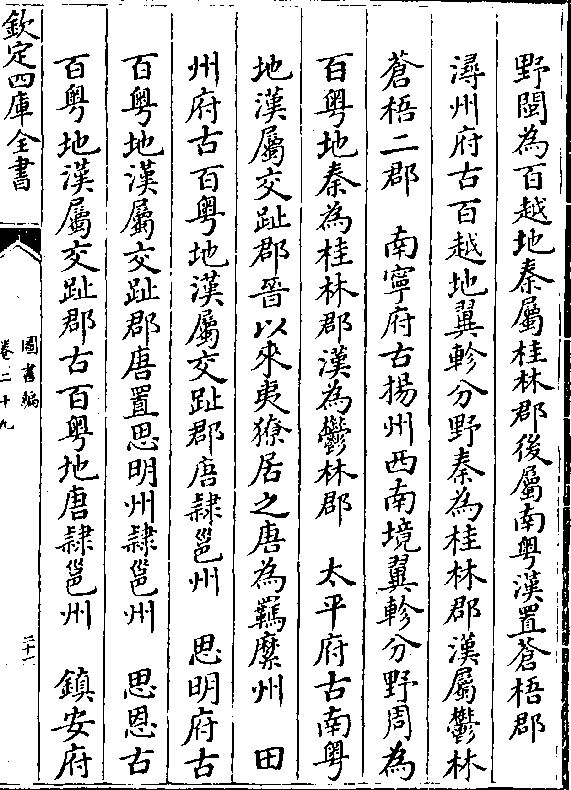 野間為百越地秦屬桂林郡後屬南粤漢置蒼梧郡
潯州府古百越地翼軫分野秦為桂林郡漢屬鬱林
蒼梧二郡　南寧府古揚州西南境翼軫分野周為
百粤地秦為桂林郡漢為鬱林郡　太平府古南粤
地漢屬交趾郡晉以來夷獠居之唐為羈縻州　田
州府古百粤地漢屬交趾郡唐隸邕州　思明府古
百粤地漢屬交趾郡唐置思明州隸邕州　思恩古
百粤地漢屬交趾郡古百粤地唐隸邕州　鎮安府
欽定四庫全書
圖書編
卷二十九
三十一